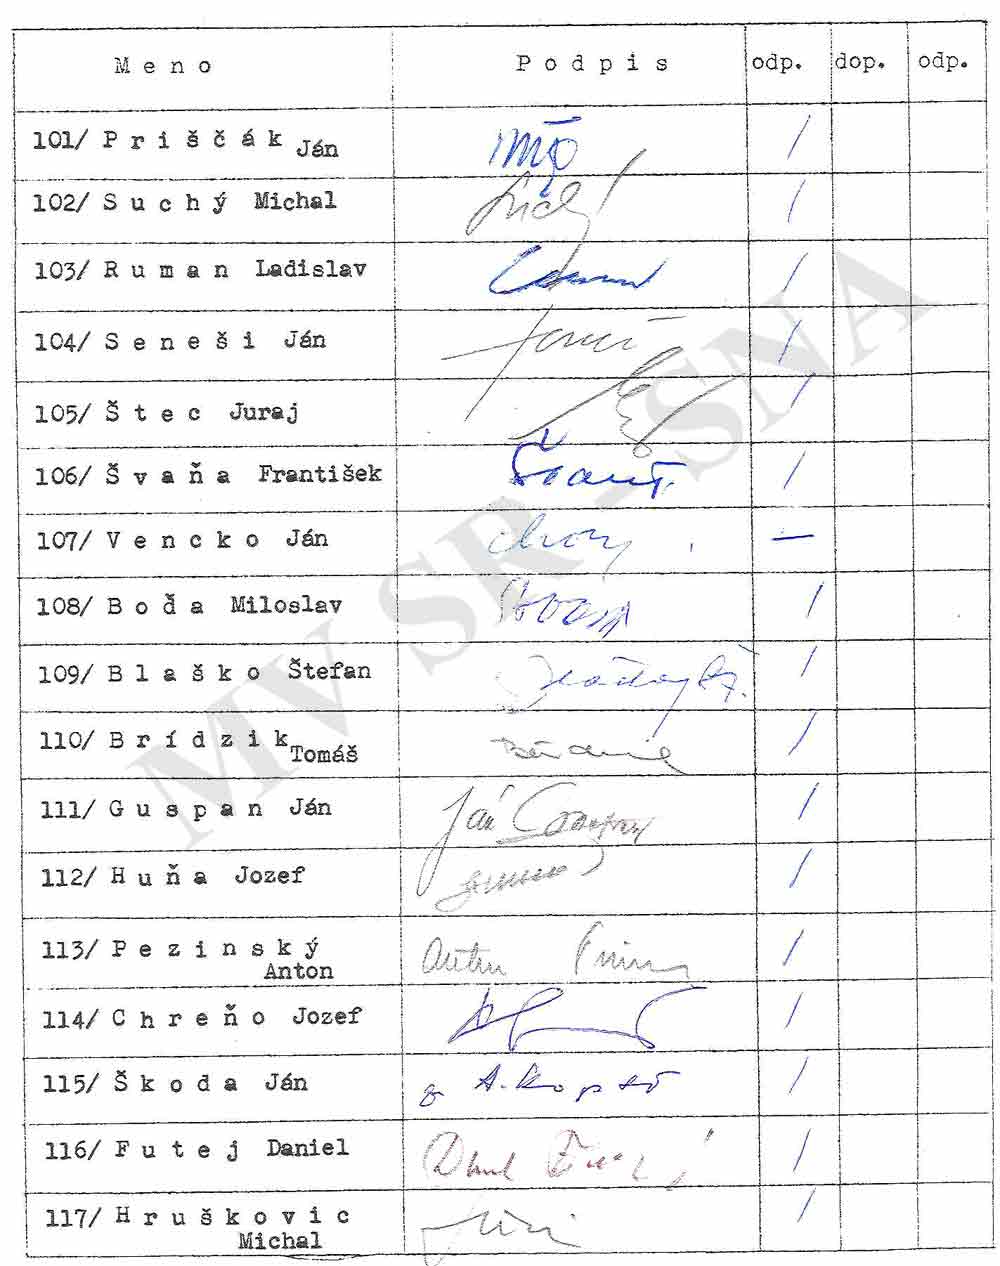 Meno Podpis odp. dop. odp.
101/ Priščák Ján /
102/ Suchý Michal /
103/ Ruman Ladislav /
104/ Seneši Ján /
105/ Štec Juraj /
106/ Švaňa František /
107/ Vencko Ján chorý —
108/ Boďa Miloslav /
109/ Blaško Štefan /
110/ Brídzik Tomáš /
111/ Guspan Ján Ján /
112/ Huňa Jozef /
113/ Pezinský Anton /
114/ Chreňo Jozef /
115/ Škoda Ján /
116/ Futej Daniel /
117/ Hruškovic Michal /
MV SR - SNA